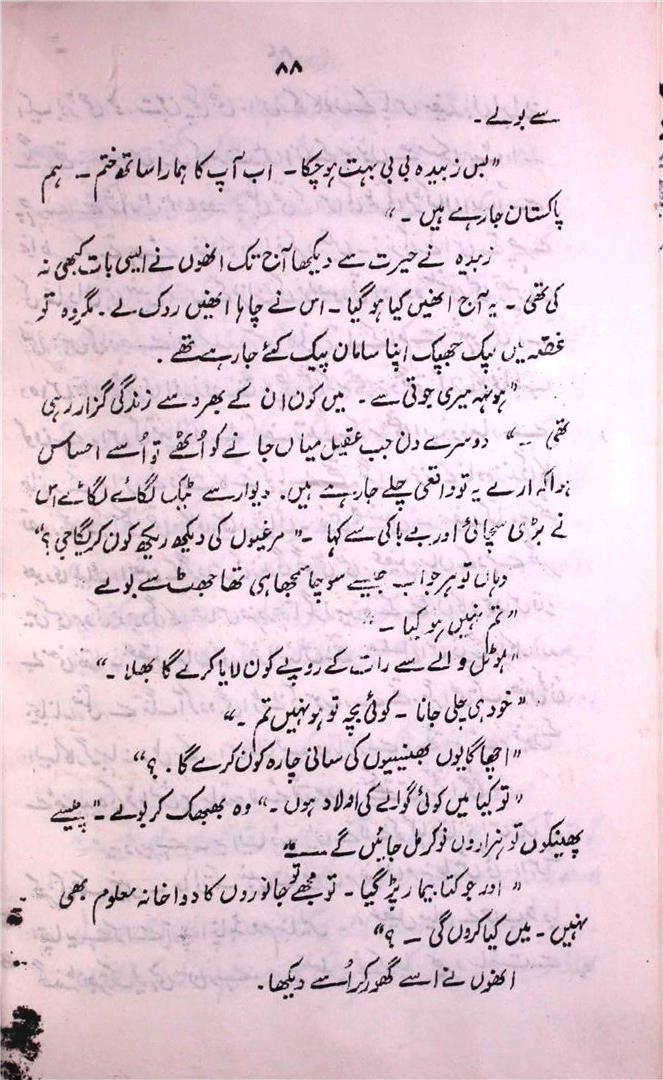 ۸۸
سے بولے ۔
"بس زبیدہ بی بی بہت ہو چکا ۔ اب آپ کا ہمارا ساتھ ختم ۔ ہم
پاکستان جا رہے ہیں ۔"
زبیدہ نے حیرت سے دیکھا آج تک انھوں نے ایسی بات کبھی نہ
کی تھی ۔ یہ آج انھیں کیا ہو گیا ۔ اس نے چاہا انھیں روک لے ۔ مگر وہ تو
غصّہ میں لپک جھپک اپنا سامان پیک کئے جا رہے تھے ۔
"ہونہہ میری جوتی سے ۔ میں کون ان کے بھروسے زندگی گزار رہی
تھی ۔" دوسرے دن جب عقیل میاں جانے کو اُٹھے تو اُسے احساس
ہوا کہ ارے یہ تو واقعی چلے جا رہے ہیں ۔ دیوار سے ٹیک لگائے لگائے اس
نے بڑی سچائی اور بے باکی سے کہا ۔" مرغیوں کی دیکھ ریکھ کون کریگا جی ؟"
وہاں تو ہر جواب جیسے سوچا سمجھا ہی تھا جھٹ سے بولے
"تم نہیں ہو کیا ۔"
"ہوٹل والے سے رات کے روپے کون لایا کرے گا بھلا ۔"
"خود ہی چلی جانا ۔ کوئی بچہ تو ہو نہیں تم ۔"
"اچھا گایوں بھینسیوں کی سانی چارہ کون کرے گا ۔ ؟"
"تو کیا میں کوئی گوالے کی اولاد ہوں ۔" وہ بھبھک کر بولے ۔" پیسے
پھینکوں تو ہزاروں نوکر مل جائیں گے ـــــ"
"اور جو کتا بیمار پڑ گیا ۔ تو مجھے تو جانوروں کا دواخانہ معلوم بھی
نہیں ۔ میں کیا کروں گی ۔ ؟"
انھوں نے اسے گھور کر اُسے دیکھا ۔